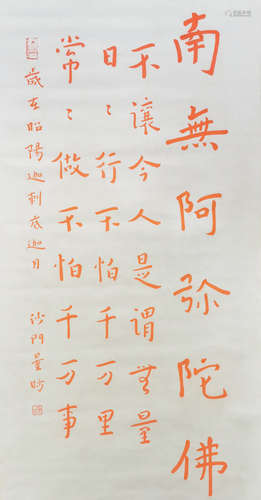 南無阿弥陀佛
不讓今人是謂無量
日〻行不怕千万里
常〻做不怕千万事
歲在昭陽迦剌底迦月
沙門曇昉